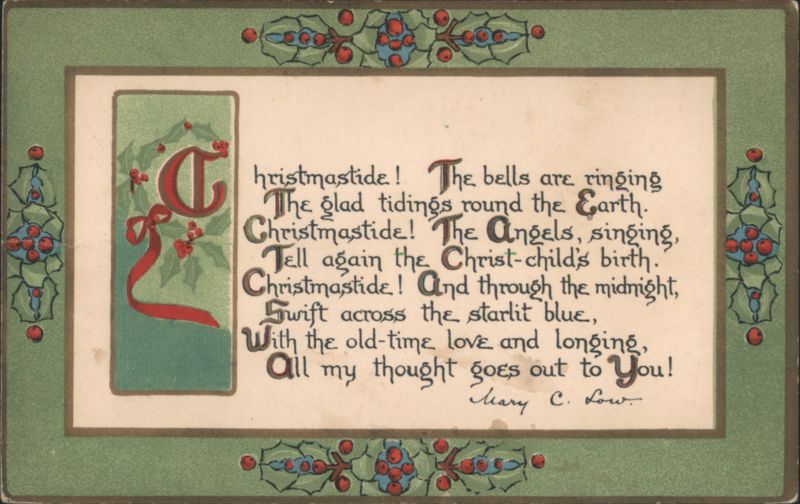 Christmastide! The bells are ringing
The glad tidings round the Earth.
Christmastide! The Angels, singing,
Tell again the Christ-child's birth.
Christmastide! And through the midnight,
Swift across the starlit blue,
With the old-time love and longing,
All my thought goes out to You!
Mary C. Low.